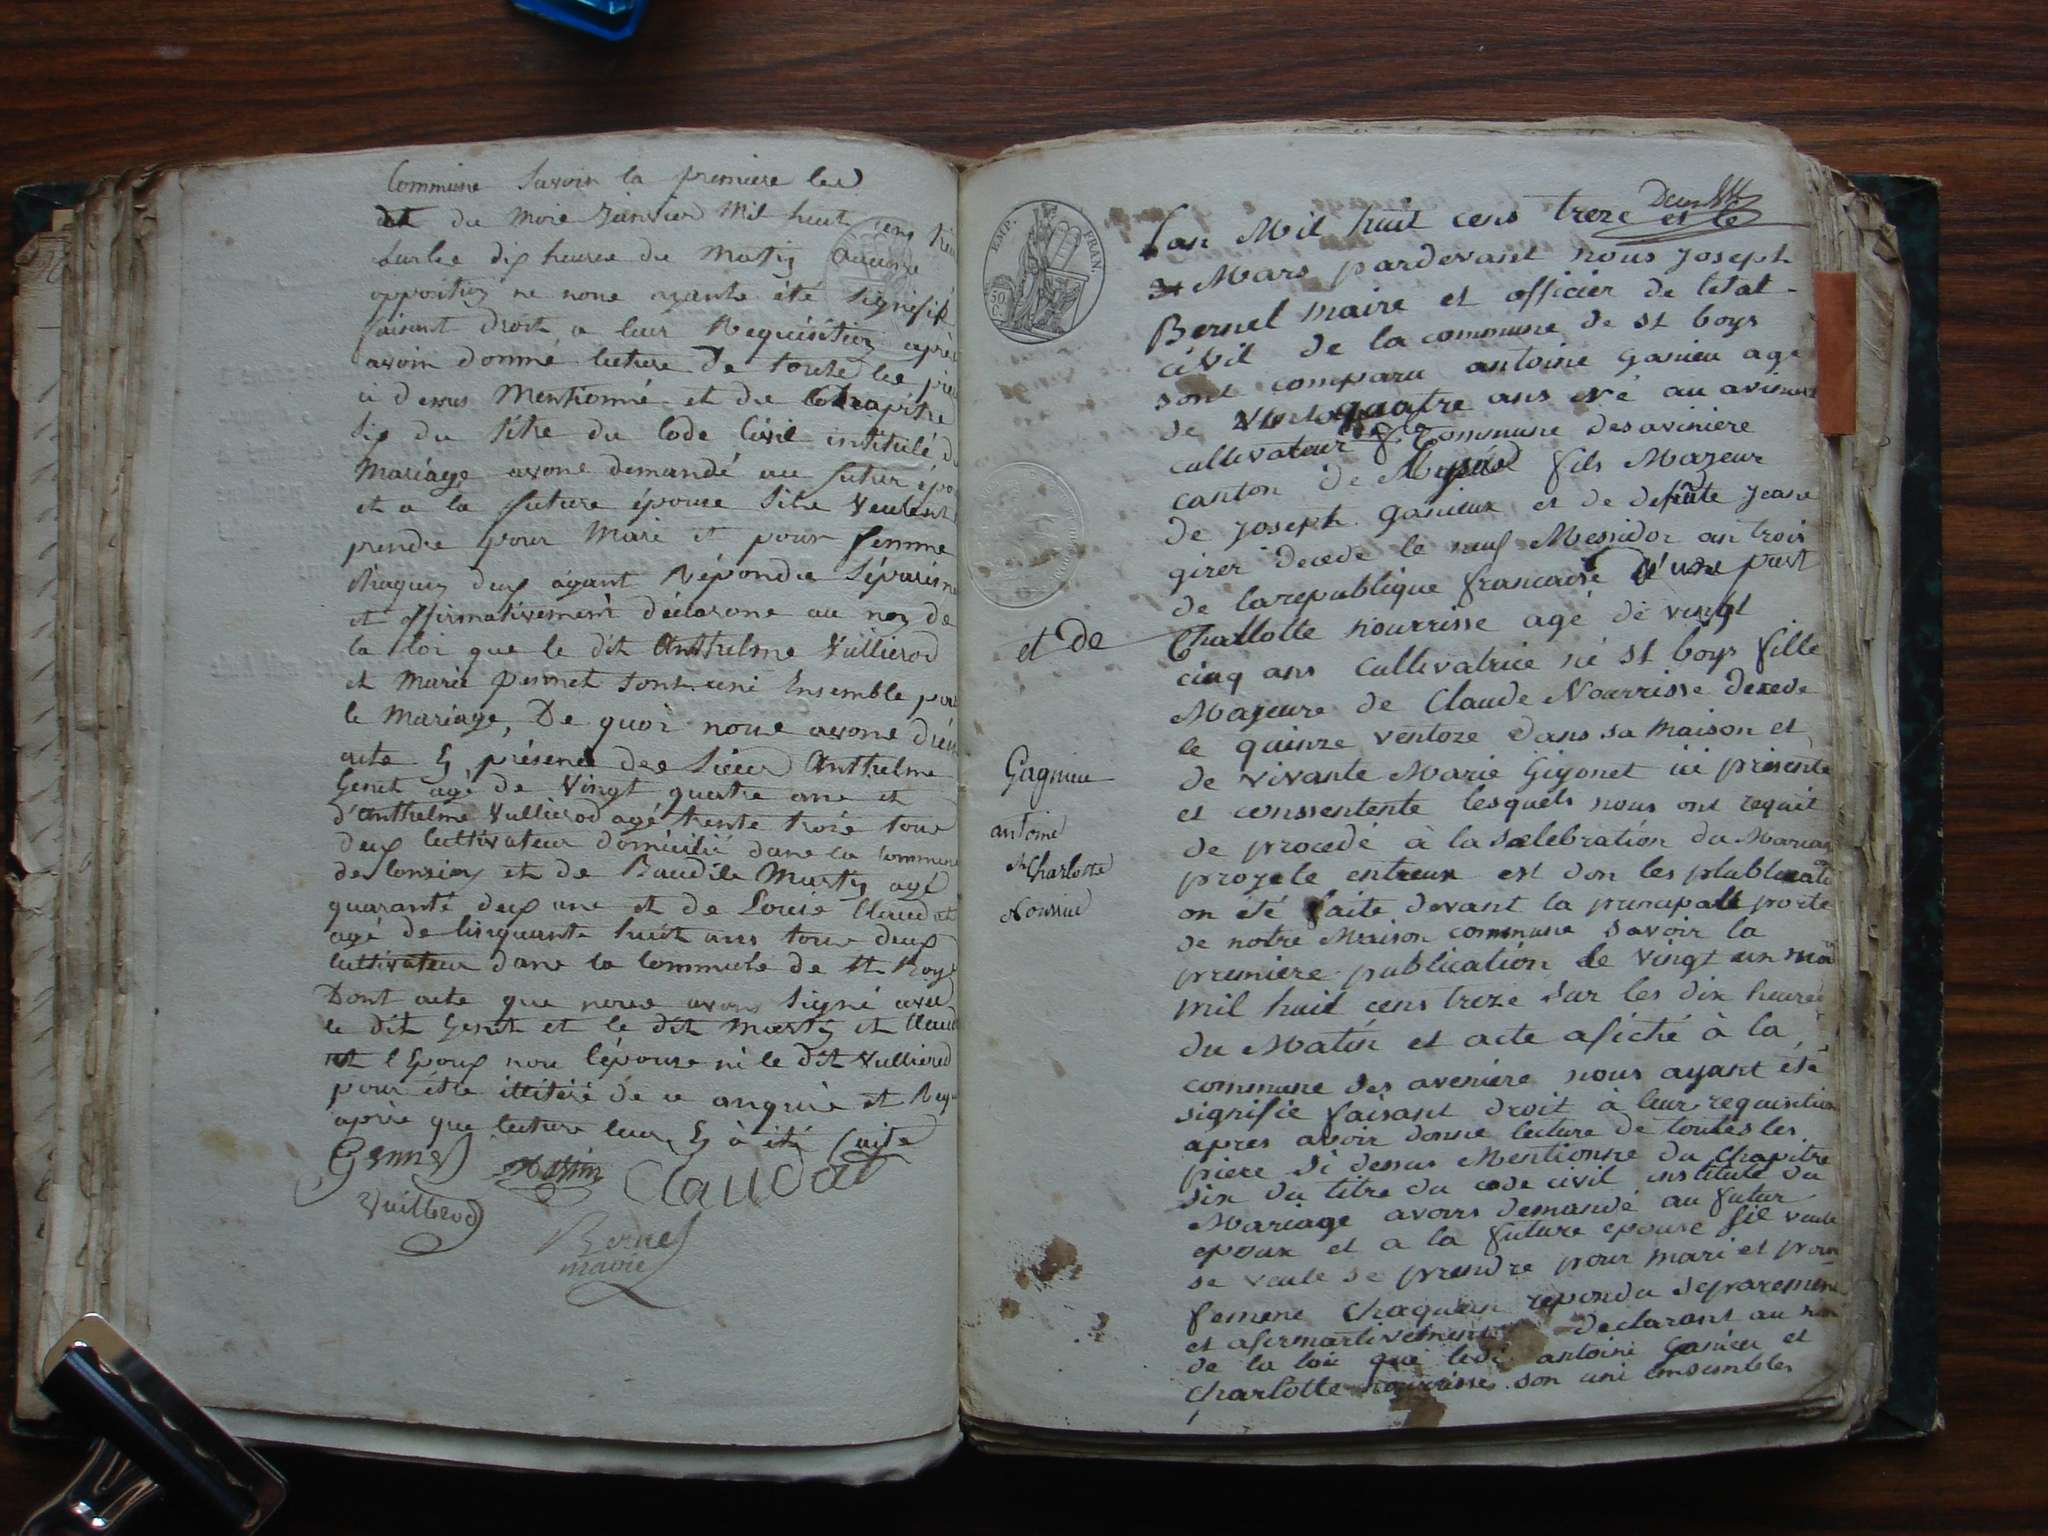 Commune Savoir la premiere les
du Mois Janvier Mil huit cens
Sur les dix heures du Matin Aucune
opposition ne nous ayante été Signifié
faisant droit a leur Requisition après
avoir donné lecture De toutes les
ci dessus Mentionné et du Chapitre
Six du titre du Code Civil intitulé du
Mariage avons demandé au futur
et a la future épouse S'ils Veulent
prendre pour Mari et pour femme
Chaquun deux ayant Répondu
et affirmativement déclarons au nom de
la loi que le dit Anthelme Vullierod
et Marie permet sont uni Ensemble par
le Mariage, De quoi nous avons
acte En présence des Sieur Anthelme
Genet agé de Vingt quatre ans et
d'Anthelme Vullierod agé trente trois tous
deux Cultivateur domicilié dans la Commune
de et de Baudile Martin agé
quarante deux ans et de Louis Claudet
agé de Cinquante huit ans tous deux
Cultivateur dans la Commune de St Boys
Dont acte que nous avons Signé avec
le dit Genet et le dit Martin et
et l'Epoux non l'épouse ni le dit Vullierod
pour être illitéré de ce anquire et
après que lecture leur En à été faite
Genne Claudat
Vuillerod
Bernel
maire
EMP. FRAN.
50
C.
Lan Mil huit cens treze et le
Mars pardevant nous Joseph
Bernel maire et officier de letat
civil de la commune de st boys
sont comparu antoine Ganieu age
de Vintquatre ans né au
cultivateur commune desaviniere
canton de fils Mazeur
de Joseph Ganieux et de defunte Jeane
girer decede le neuf Messidor an trois
de larepublique francaise D'une part
et de Charlotte nourrisse agé de vingt
cinq ans cultivatrice né st boys fille
Majeure de Claude Nourrisse decede
le quinze ventoze dans sa maison et
de vivante Marie Gigonet ici presente
Gagnieu
et conssentente lesquels nous ont requit
antoine
de procedé à la Selebration du
et Charlotte
proyete entreux est don les
Nourrice
on été faite devant la principalle porte
de notre Maison commune savoir la
premiere publication le Vingt un
mil huit cens treze sur les dix heures
du Matin et acte afiché à la
commune des aveniere nous ayant été
signifie faisant droit à leur requisition
apres avoir donne lecture de toutes les
piere Si dessus Mentionne du Chapitre
six du titre du code civil institulé du
Mariage avons demandé au futur
epoux et a la future epouse sil veule
se veule se prendre pour mari et pour
femene Chaquun repondu
et declarant au
de la loi que antoine Ganieu et
Charlotte nourrisse son uni ensembles